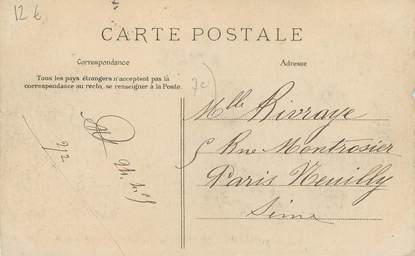 12 €
CARTE POSTALE
Correspondance
Adresse
Tous les pays étrangers n'acceptent pas là
correspondance au recto, se renseigner à la Poste.
Mlle Rivraye
5 Rue Montrosier
Paris Neuilly
Seine
212